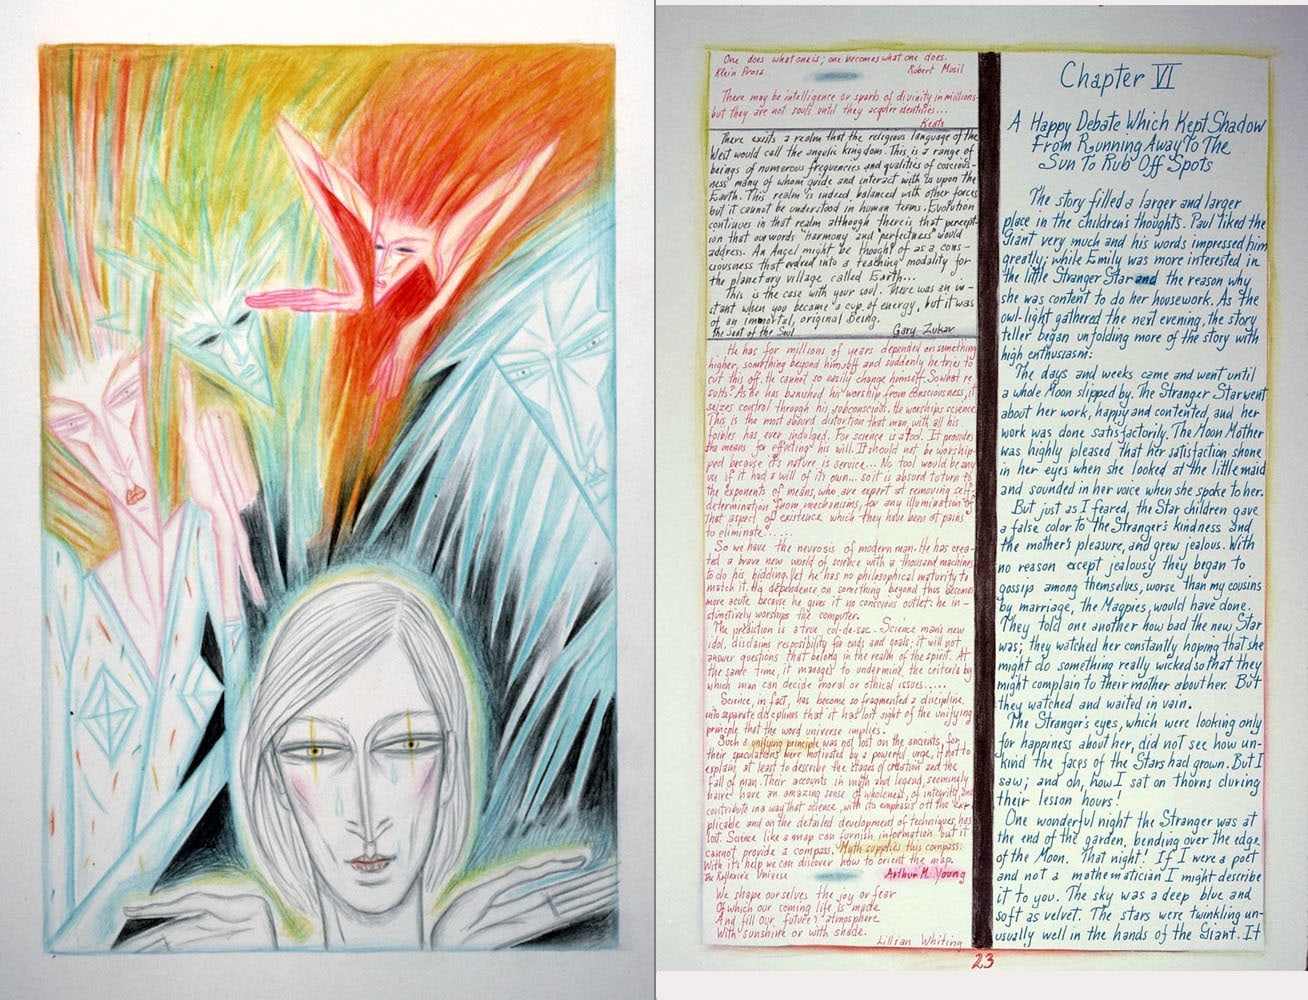 One does what one is; one becomes what one does.
Klein Prosz Robert Musil
There may be intelligence or sparks of divinity in millions-
but they are not souls until they acquire identities...
Keats
There exists a realm that the religious language of the
West would call the angelic kingdom. This is a range of
beings of numerous frequencies and qualities of coscious-
ness many of whom guide and interact with us upon the
Earth. This realm is indeed balanced with other forces
but it cannot be understood in human terms. Evolution
continues in that realm although there is that percept-
ion that our words "harmony" and "perfectness" would
address. An Angel might be thought of as a cons-
ciousness that evolved into a teaching modality for
the planetary village called Earth...
This is the case with your soul. There was an in-
stant when you became a cup of energy, but it was
of an immortal, original Being.
The Seat of the Soul Gary Zukav
He has for millions of years depended on something
higher, something beyond himself and suddenly he tries to
cut this off. He cannot so easily change himself. So what re-
sults? As he has banished his worship from consciousness, it
seizes control through his subconscious. He worships science
This is the most absurd distortion that man, with all his
foibles has ever indulged. For science is a tool. It provides
the means for effecting his will. It should not be worship-
ped because it's nature is service... No tool would be any
use if it had a will of its own... so it is absurd to turn to
the exponents of means, who are expert at removing self
determination from mechanisms, for any illumination of
that aspect of existence which they have been at pains
to eliminate......
So we have the neurosis of modern man. He has crea-
ted a brave new world of science with a thousand machines
to do his bidding. Yet he has no philosophical maturity to
match it. His dependence on something beyond thus becomes
more acute because he gives it no conscious outlet: he in-
stinctively worships the computer.
The prediction is a true cul-de-sac. Science man's new
idol, disclaims resposibility for ends and goals; it will not
answer questions that belong in the realm of the spirit. At
the same time, it manages to undermine the criteria by
which man can decide moral or ethical issues.....
Science, in fact, has become so fragmented a discipline
into separate disciplines that it has lost sight of the unifying
principle that the word universe implies.
Such a unifying principle was not lost on the ancients, for
their speculations were motivated by a powerful urge, if not to
explain at least to describe the stages of creation and the
fall of man. Their accounts in myth and legend, seemingly
naive have an amazing sense of wholeness, of integrity, and
contribute in a way that science, with its emphasis off the ex-
plicable and on the detailed development of techniques, has
lost. Science like a map can furnish information but it
cannot provide a compass. Myth supplies this compass.
With it's help we can discover how to orient the map.
The Reflexive Universe Arthur M. Young
We shape ourselves the joy or fear
Of which our coming life is made
And fill our future's atmosphere
With sunshine or with shade.
Lillian Whiting
Chapter VI
A Happy Debate Which Kept Shadow
From Running Away To The
Sun To Rub Off Spots
The story filled a larger and larger
place in the children's thoughts. Paul liked the
Giant very much and his words impressed him
greatly; while Emily was more interested in
the little Stranger Star and the reason why
she was content to do her housework. As the
owl-light gathered the next evening, the story
teller began unfolding more of the story with
high enthusiasm:
The days and weeks came and went until
a whole Moon slipped by. The Stranger Star went
about her work, happy and contented, and her
work was done satisfactorily. The Moon Mother
was highly pleased that her satisfaction shone
in her eyes when she looked at the little maid
and sounded in her voice when she spoke to her.
But just as I feared, the Star children gave
a false color to the Stranger's kindness and
the mother's pleasure, and grew jealous. With
no reason except jealousy they began to
gossip among themselves, worse than my cousins
by marriage, the Magpies, would have done.
They told one another how bad the new Star
was; they watched her constantly hoping that she
might do something really wicked so that they
might complain to their mother about her. But
they watched and waited in vain.
The Stranger's eyes, which were looking only
for happiness about her, did not see how un-
kind the faces of the Stars had grown. But I
saw; and oh, how I sat on thorns during
their lesson hours!
One wonderful night the Stranger was at
the end of the garden, bending over the edge
of the Moon. That night! If I were a poet
and not a mathematician I might describe
it to you. The sky was a deep blue and
soft as velvet. The stars were twinkling un-
usually well in the hands of the Giant. It
23